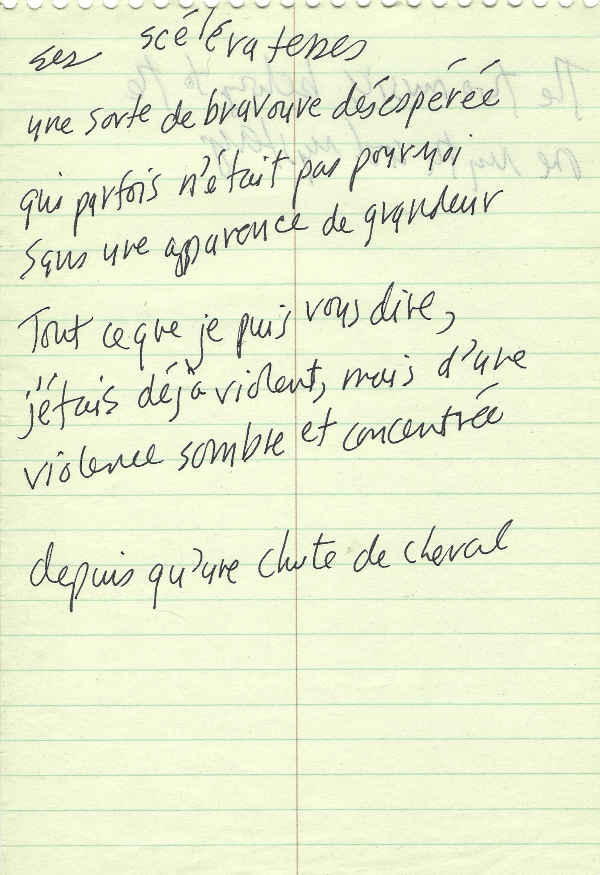 ses scélératesses
une sorte de bravoure désespérée
qui parfois n'était pas pour moi
sans une apparence de grandeur
Tout ce que je puis vous dire,
j'étais déjà violent, mais d'une
violence sombre et concentrée
depuis qu'une chute de cheval